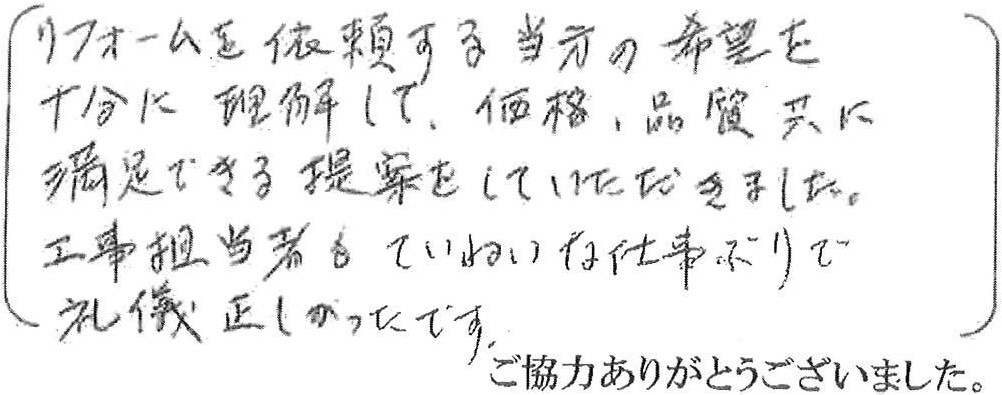 リフォームを依頼する当方の希望を
十分に理解して、価格、品質共に
満足できる提案をしていただきました。
工事担当者もていねいな仕事ぶりで
礼儀正しかったです。
ご協力ありがとうございました。